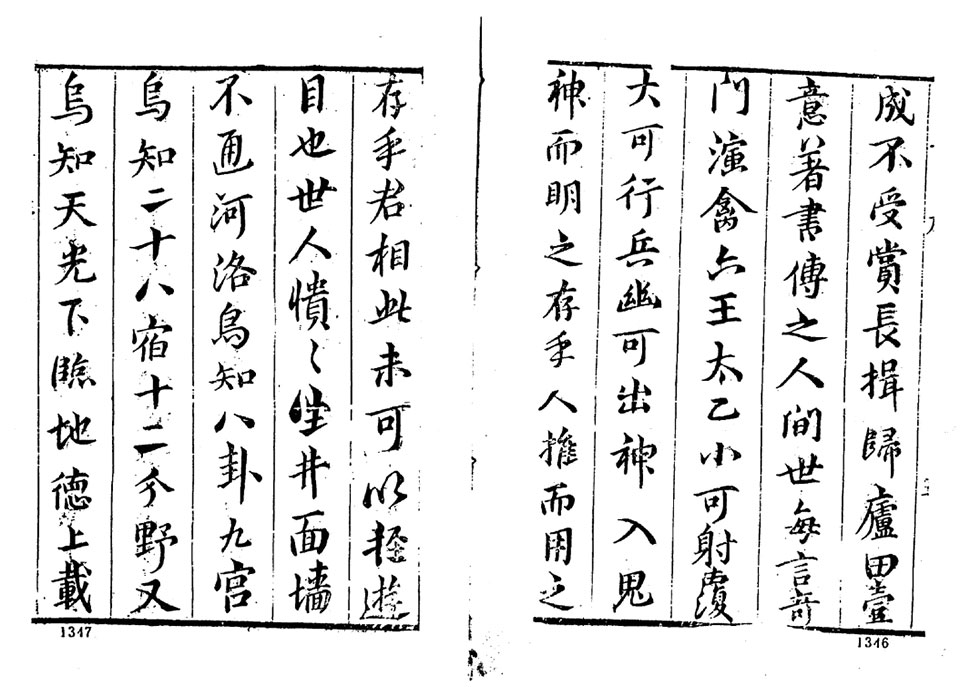 成不受賞長揖歸廬田壹
意著書傳之人間世每言奇
門演禽六壬太乙小可射覆
大可行兵幽可出神入鬼
神而明之存乎人推而用之
1346
存乎君相此未可以輕進
目也世人憒〻坐井面墙
不通河洛烏知八卦九宫
烏知二十八宿十二分野又
烏知天光下臨地德上載
1347